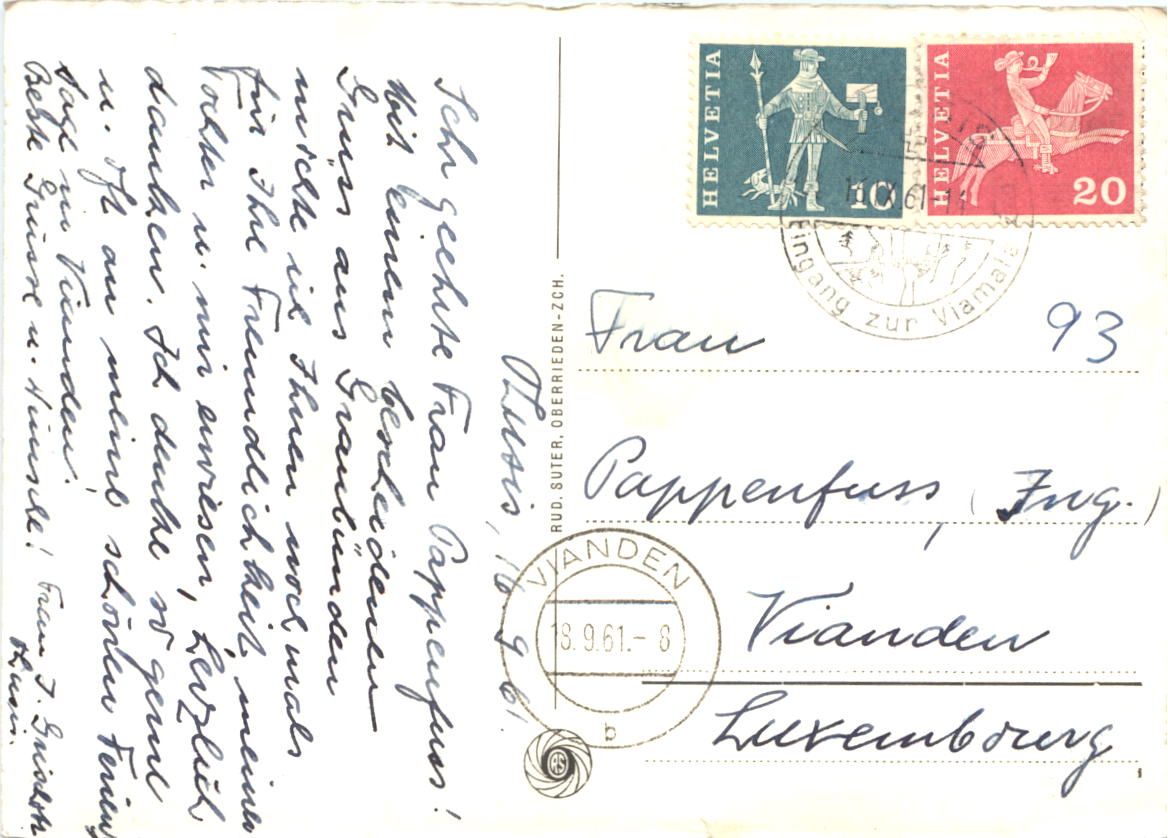 Thusis, 16. 9. 61.
Sehr geehrte Frau Pappenfuss!
Mit einem bescheidenen
Gruss aus Graubünden
möchte ich Ihnen nochmals
für Ihre Freundlichkeit, meiner
Tochter u. mir erwiesen, herzlich
danken. Ich denke so gerne
u. oft an meine schönen Ferien
tage in Vianden!
Beste Grüsse u. Wünsche! Frau J.
Thusis.
RUD. SUTER, OBERRIEDEN-ZCH.
HELVETIA
10
HELVETIA
20
THUSIS
16.IX.61-11
Eingang zur Viamala
Frau
93
Pappenfuss, (Ing.)
Vianden
Luxembourg
VIANDEN
18.9.61.-8
b